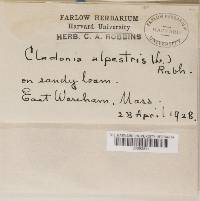 FARLOW HERBARIUM
Harvard University
HERB. C. A. ROBBINS
Cladonia alpestris (L.)
Rabh.
on sandy loam.
East Wareham, Mass.
28 April 1928.